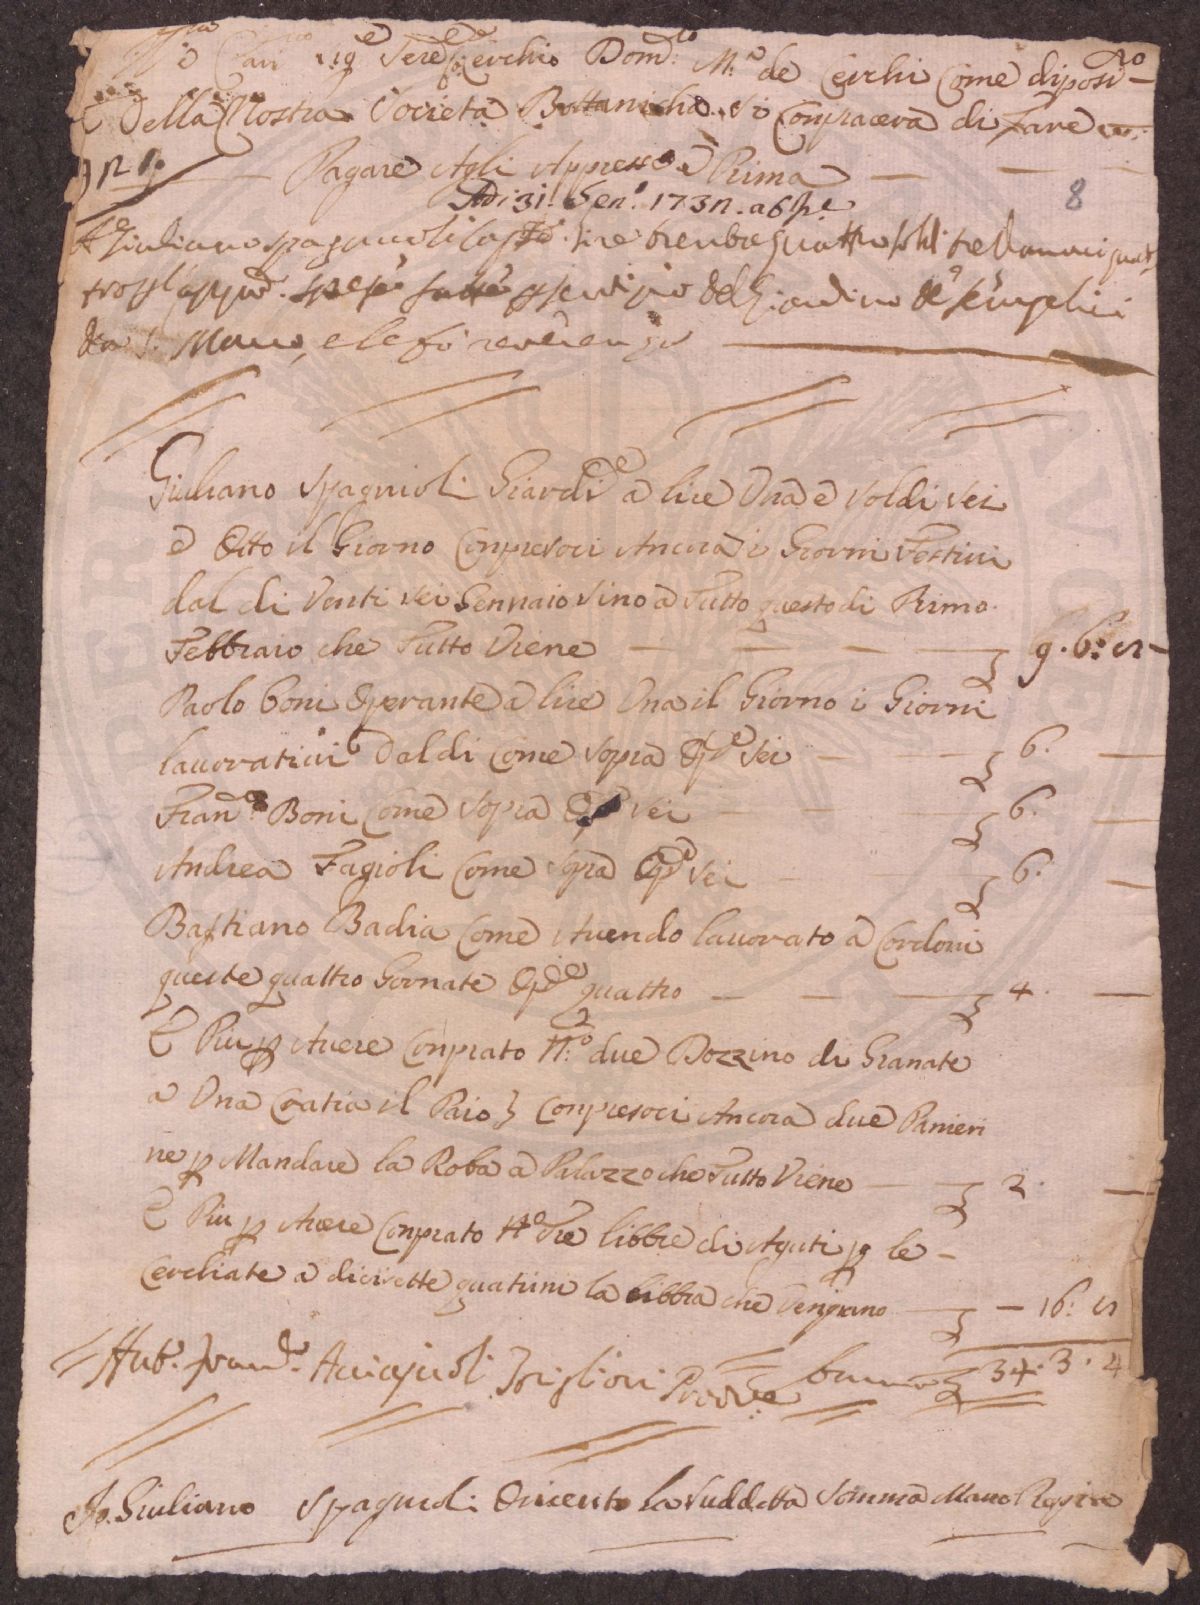 Sig.e Sere Cerchio Dom.co M.a de Cerchi Come diposi.ro
Della Nostra Società Bottanicha si Compiacerà di Fare
Pagare Agli Appresso e Prima
8
Adi 31. Gen.o 1737. ab Inc.e
A Giuliano Spagnuoli lire trentaquattro soldi tre danari quat
tro p l'app.o spese fatte p servizio del Giardino de semplici
da S. Marco, e le fo reverenza
Giuliano Spagniuoli Giardi.e a lire Una e soldi sei
e Otto il Giorno Conpresoci Ancora i Giorni Festivi
dal di Venti sei Gennaio sino a Tutto questo di Primo
Febbraio che Tutto Viene 9. 6. 8
Paolo Boni Operante a lire Una il Giorno i Giorni
lauoratiui Dal di Come sopra Op.e sei 6.
Fran.o Boni Come sopra Op.e sei 6.
Andrea Fagioli Come sopra Op.e sei 6.
Bastiano Badia Come Auendo lauorato a Cordoni
queste quattro Gornate Op.e quattro 4.
E Piu p Auere Conprato N.o due Dozzine di Granate
a Una Cratia il Paio Conpresoci Ancora due Panieri
ne p Mandare la Roba a Palazzo che Tutto Viene 2.
E Piu p Avere Conprato N.o Tre libbre di Aguti p le
Cerchiate a dicisette quatrini la libbra che Vengano 16: 8
Acciajuoli Prov.re 34. 3. 4
Io Giuliano Spagnuoli O riceuto la Suddetta Somma Mano Propria